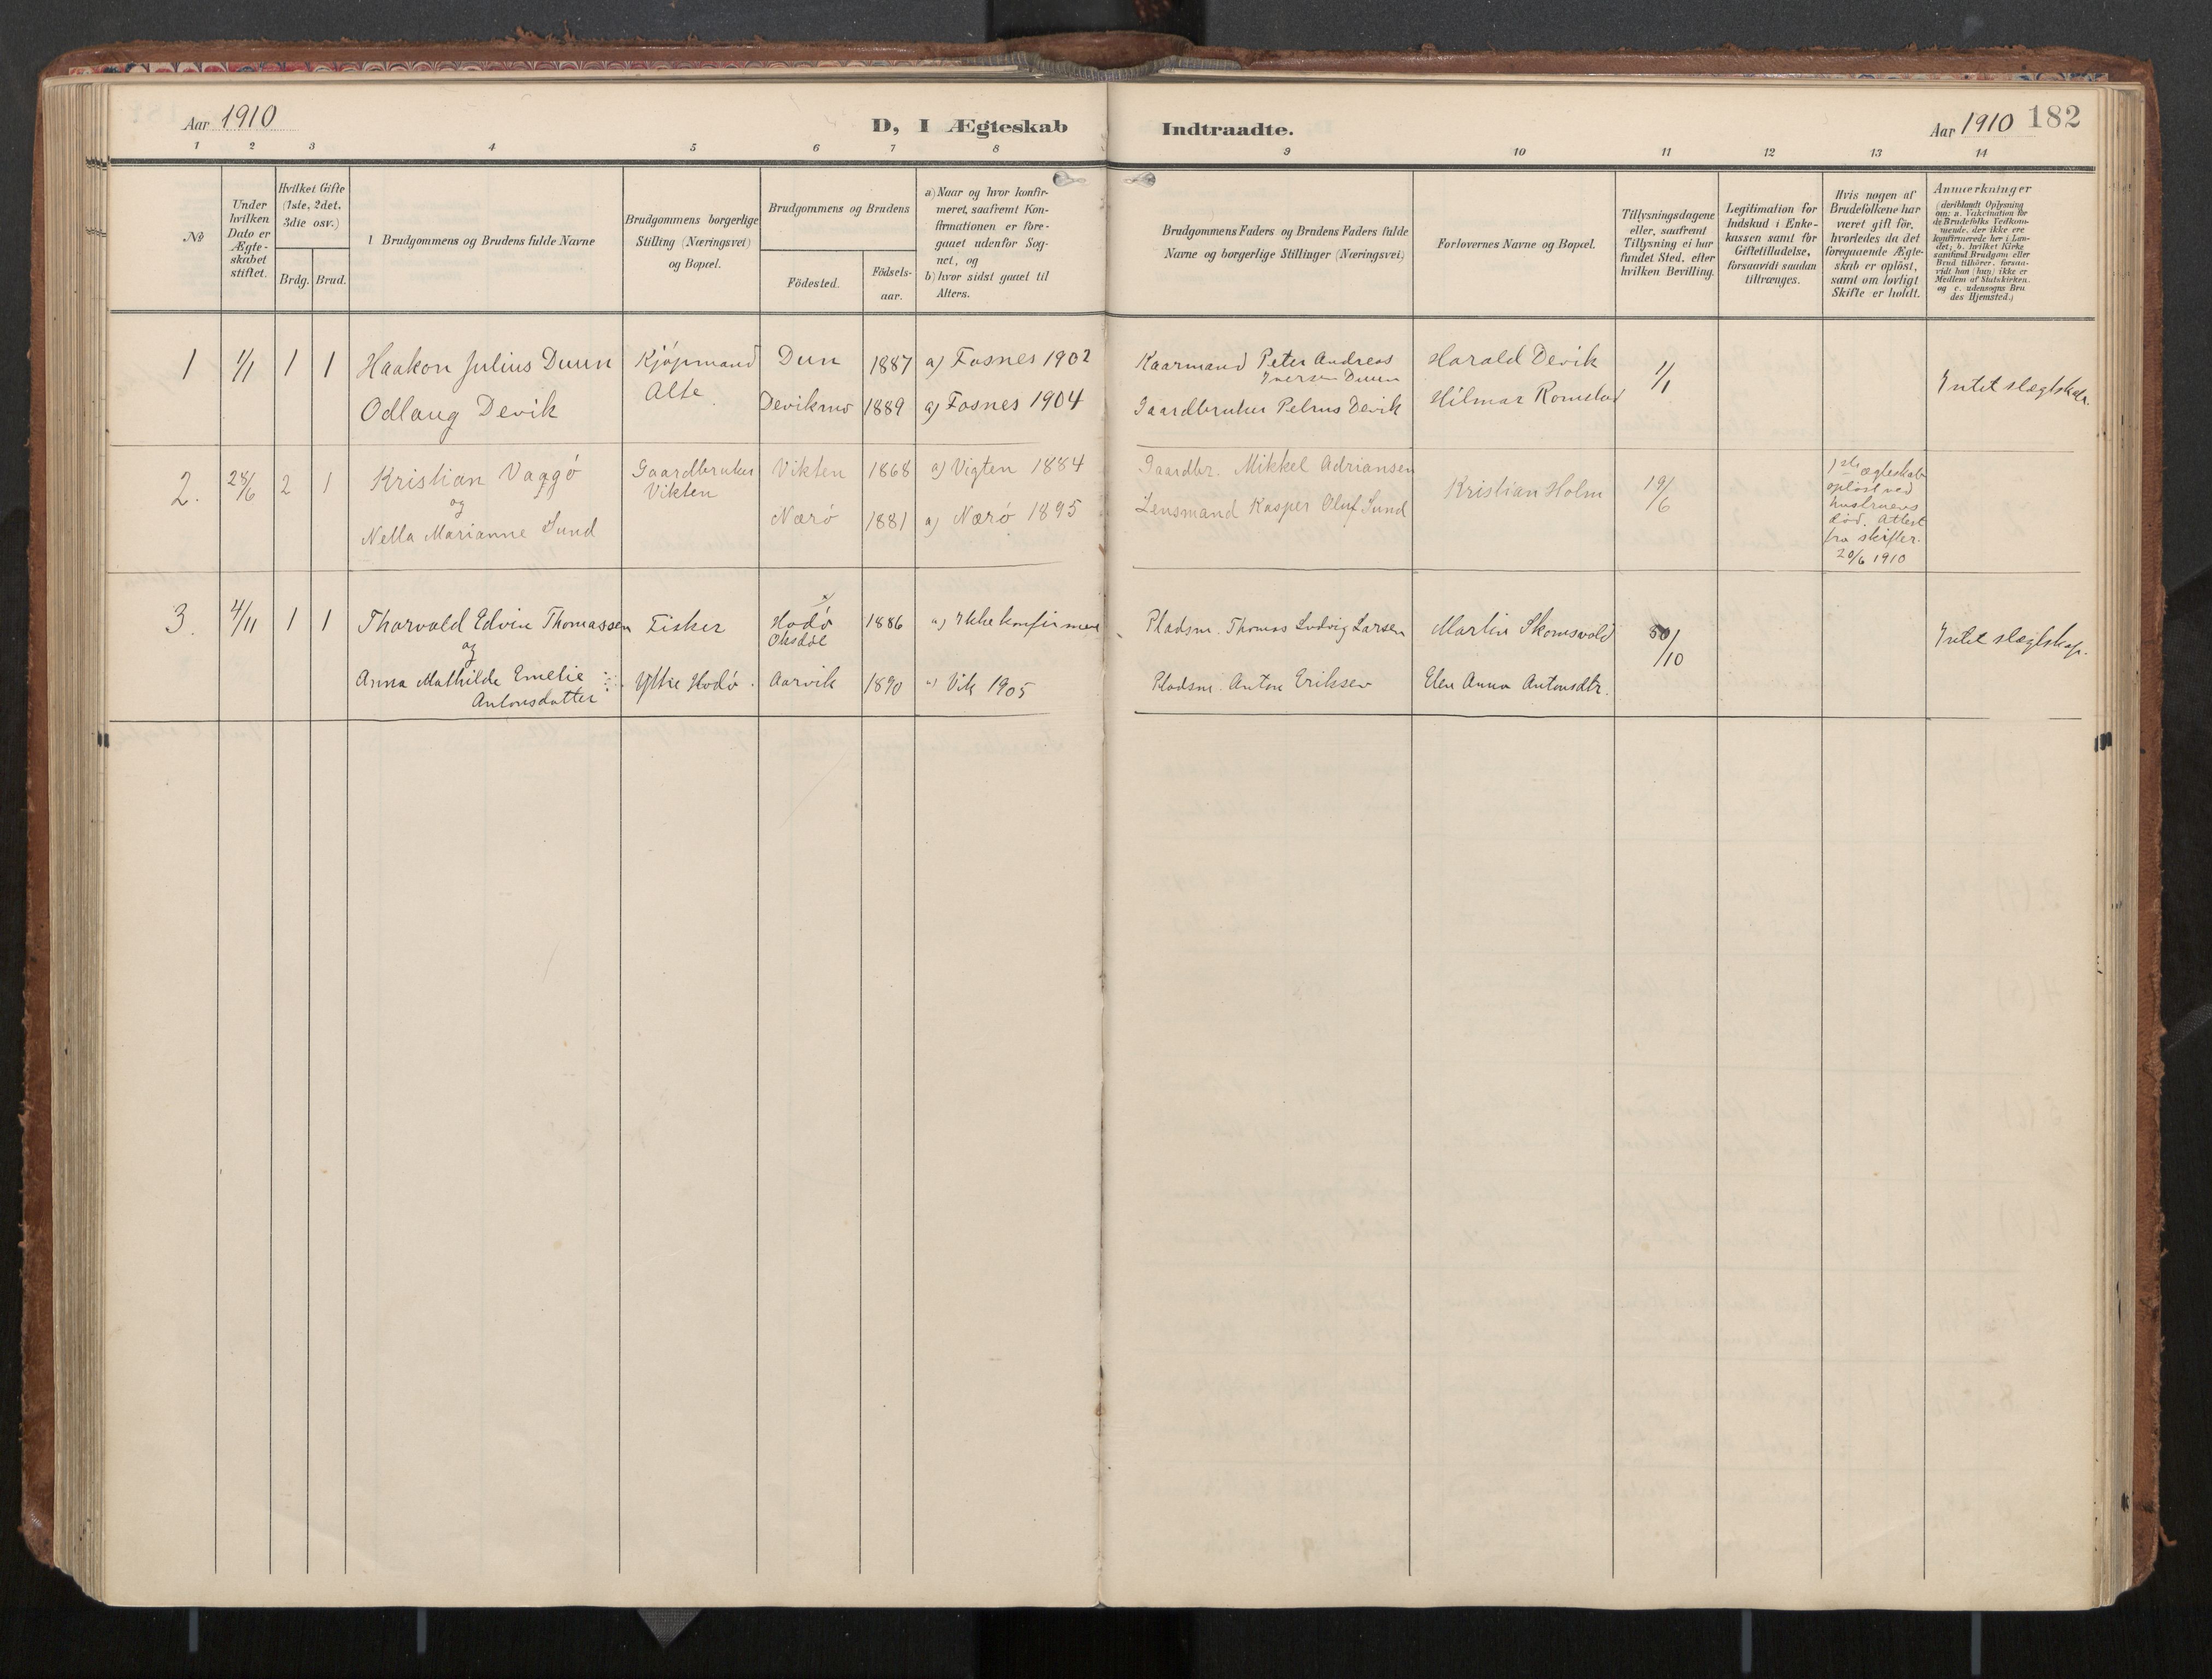 Aar 1910
D, I Ægteskab Indtraadte.
Aar 1910 182
1 2 3 4 5 6 7 8 9 10 11 12 13 14
No
Under hvilken Dato er Ægte-skabet stiftet.
Hvilket Gifte (1ste, 2det, 3die osv.)
Brdg. Brud.
Brudgommens og Brudens fulde Navne
Brudgommens borgerlige Stilling (Næringsvei) og Bopæl.
Brudgommens og Brudens
Födested.
Födsels-aar.
a) Naar og hvor konfir-meret, saafremt Kon-firmationen er fore-gaaet udenfor Sog-net, og
b) hvor sidst gaaet til Alters.
Brudgommens Faders og Brudens Faders fulde Navne og borgerlige Stillinger (Næringsvei)
Forlovernes Navne og Bopæl.
Tillysningsdagene eller, saafremt Tillysning ei har fundet Sted, efter hvilken Bevilling.
Legitimation for Indskud i Enke-kassen samt for Giftetilladelse, forsaavidt saadan tiltrænges.
Hvis nogen af Brudefolkene har været gift för, hvorledes da det foregaaende Ægte-skab er oplöst, samt om lovligt Skifte er holdt.
Anmærkninger (deriblandt Oplysning om: a. Vakcination for de Brudefolks Vedkom-mende, der ikke ere konfirmerede her i Lan-det; b. hvilket Kirke-samfund Brudgom eller Brud tilhörer, forsaa-vidt han (hun) ikke er Medlem af Statskirken, og c. udensogns Bru-des Hjemsted.)
1 1/1 1 1 Haakon Julius Duun Kjøpmand Dun 1887 a) Fosnes 1902 Kaarmand Peter Andreas Harald Devik 1/1 Intet slægtskap.
Iversen Duun
Odlaug Devik Alte Deviknes 1889 a) Fosnes 1904 Gaardbruker Petrus Devik Hilmar Romstad
2. 28/6 2 1 Kristian Vaggö Gaardbruker Vikten 1868 a) Vigten 1884 Gaardbr. Mikkel Adriansen Kristian Holm 19/6 1ste ægteskab
og Vikten oplöst ved
Nella Marianne Sund Nærö 1881 a) Nærö 1895 Lensmand Kasper Oluf Sund hustruens
död. Attest
fra skifter.
20/6 1910
3. 4/11 1 1 Thorvald Edvin Thomassen Fisker Hodö 1886 a) Ikke konfirmert Pladsm. Thomas Ludvig Larsen Martin Skomsvold 30/10 Intet slægtskap.
og
Anna Mathilde Emelie Yttre Hodö. Aarvik 1890 a) Vik 1905 Pladsm. Anton Eriksen Elen Anna Antonsdtr.
Antonsdatter